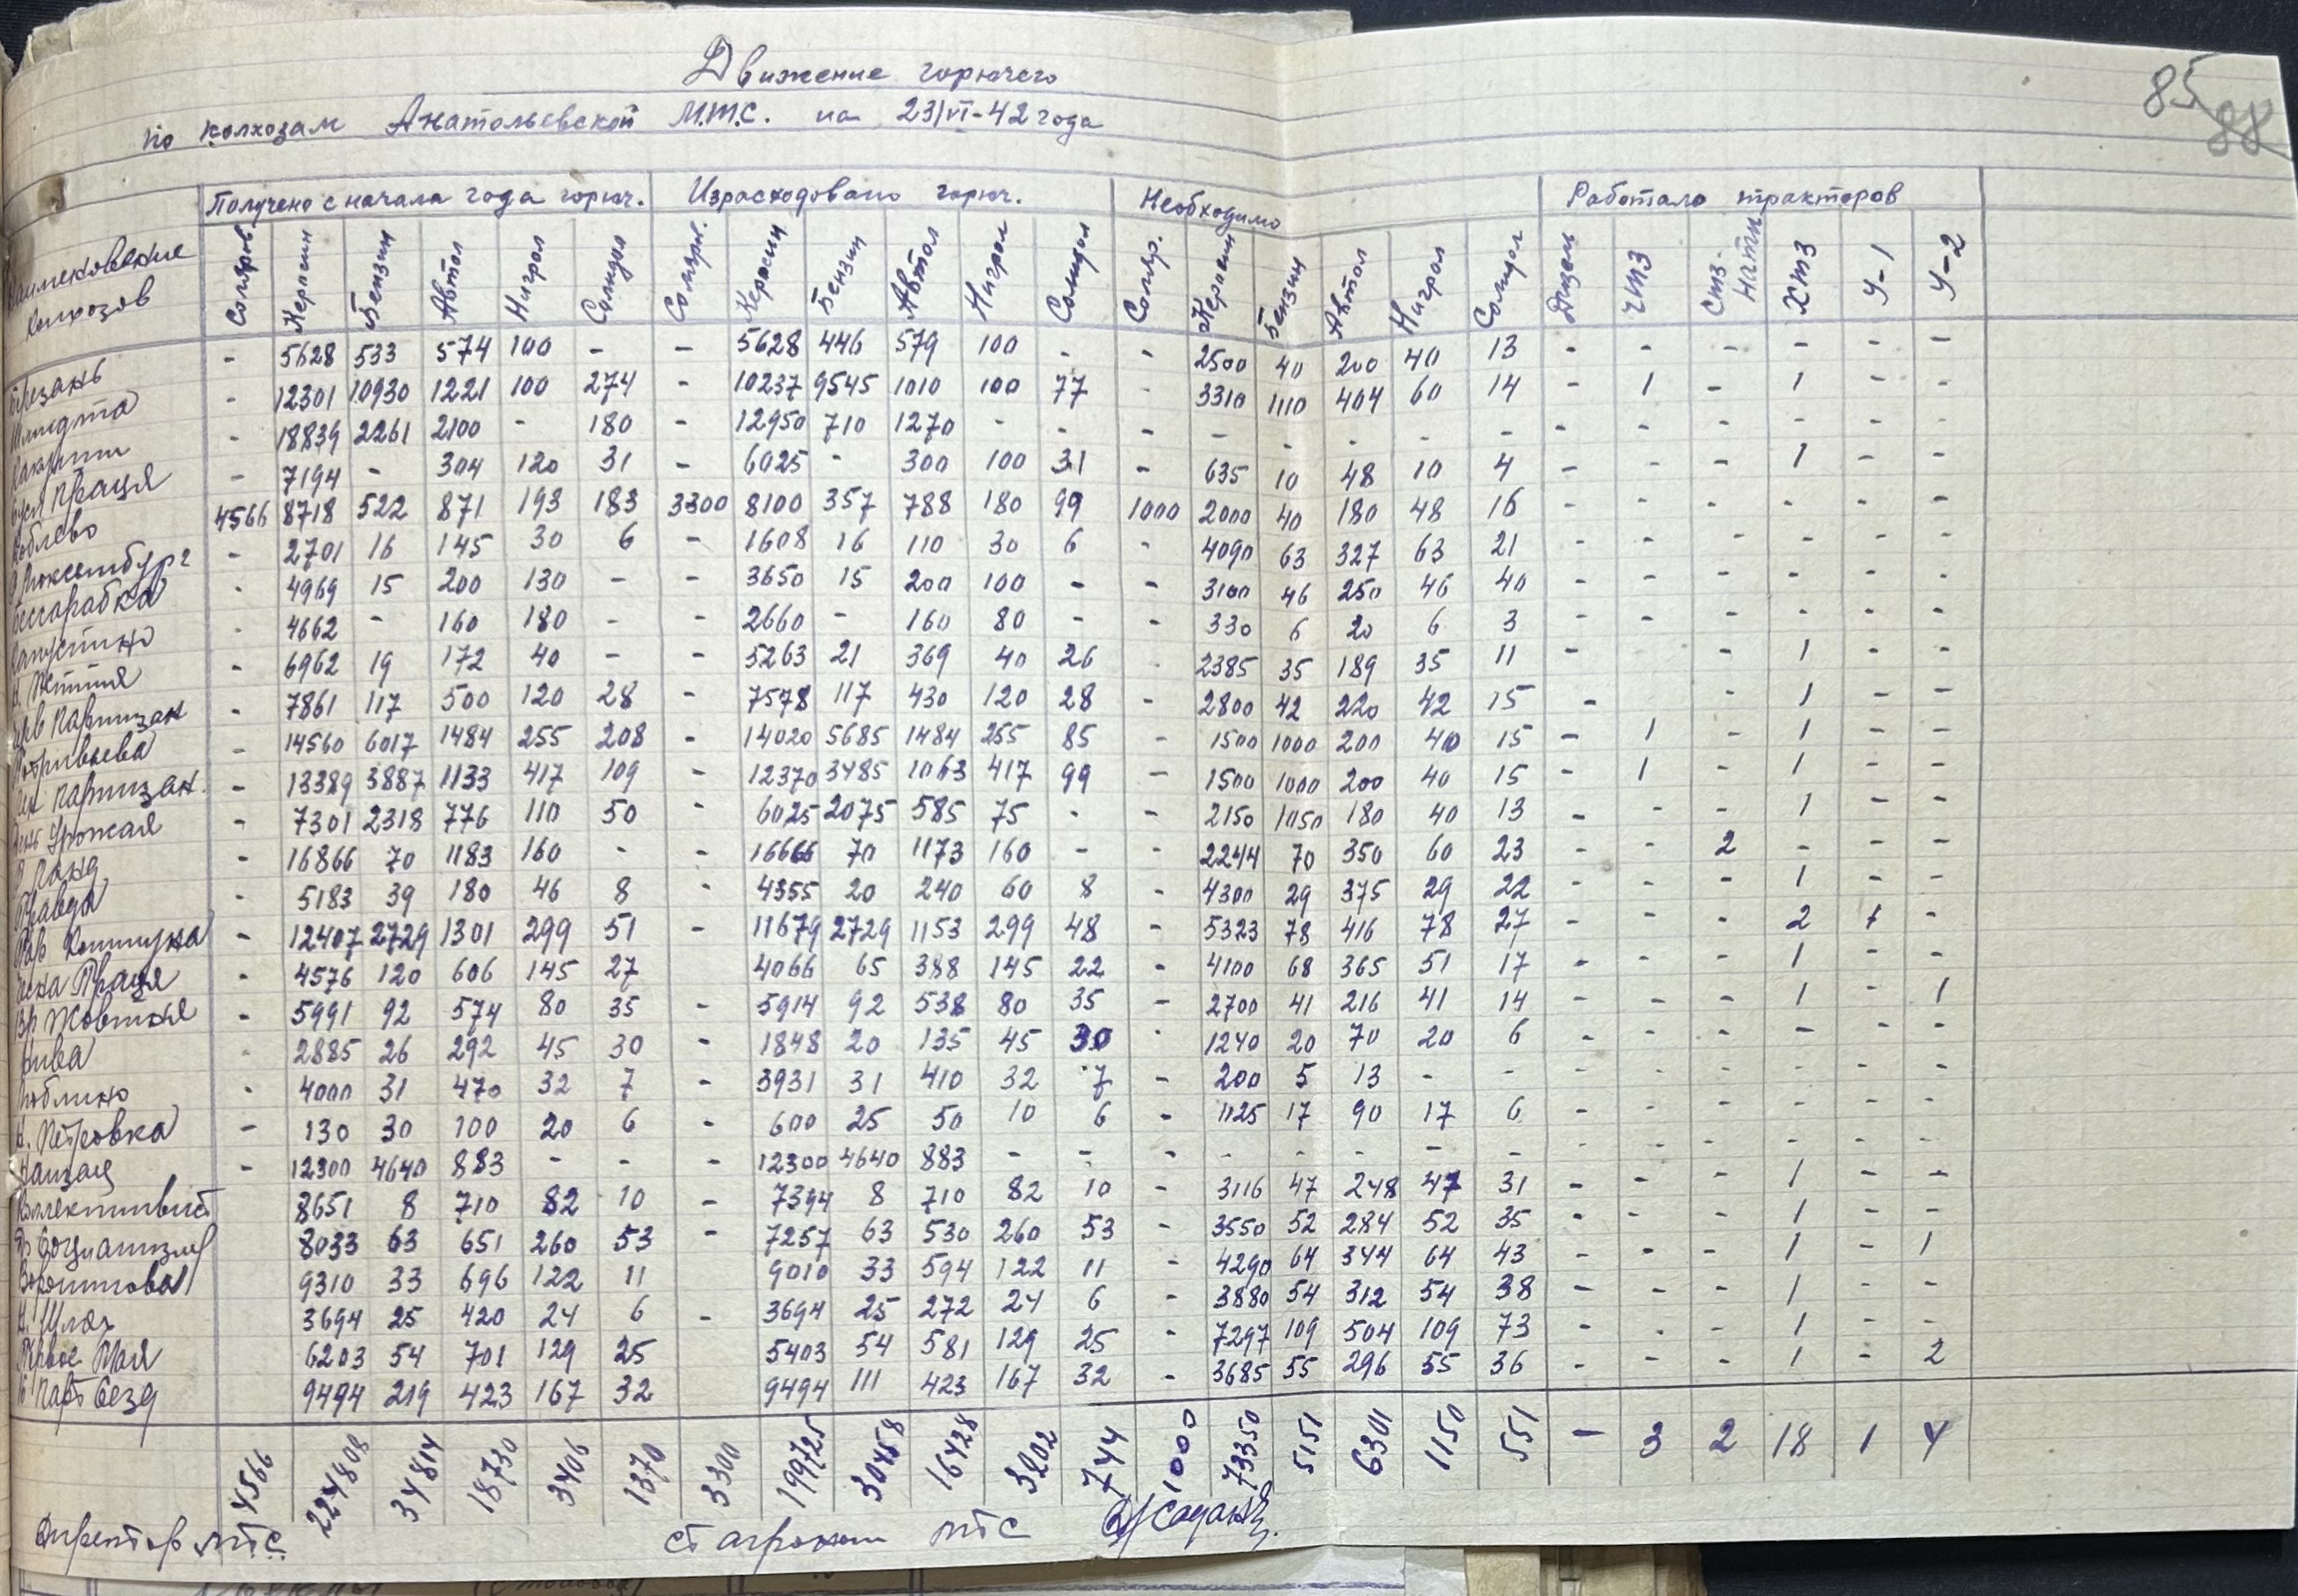 85 88
Движение горючего
по колхозам Анатольевской М.Т.С. на 23/VI-42 года
Наименование колхозов Получено с начала года горюч. Израсходовано горюч. Необходимо Работало тракторов
Соляров. Керосин Бензин Автол Нигрол Солидол Соляров. Керосин Бензин Автол Нигрол Солидол Соляр. Керосин Бензин Автол Нигрол Солидол Дизель ЧТЗ СТЗ-Нати ХТЗ У-1 У-2
Березань - 5628 533 574 100 - - 5628 446 579 100 - - 2500 40 200 40 13 - - - - - -
Шмидта - 12301 10930 1221 100 274 - 10237 9545 1010 100 77 - 3310 1110 404 60 14 - 1 - 1 - -
- 18839 2261 2100 - 180 - 12950 710 1270 - - - - - - - - - - - - - -
Праця - 7194 - 304 120 31 - 6025 - 300 100 31 - 635 10 48 10 4 - - - 1 - -
Коблево 4566 8718 522 871 193 183 3300 8100 357 788 180 99 1000 2000 40 180 48 16 - - - - - -
Люксембург - 2701 16 145 30 6 - 1608 16 110 30 6 - 4090 63 327 63 21 - - - - - -
Бессарабка - 4969 15 200 130 - - 3650 15 200 100 - - 3100 46 250 46 40 - - - - - -
Капустино - 4662 - 160 180 - - 2660 - 160 80 - - 330 6 20 6 3 - - - - - -
- 6962 19 172 40 - - 5263 21 369 40 26 2385 35 189 35 11 - - 1 - -
Партизан - 7861 117 500 120 28 - 7578 117 430 120 28 - 2800 42 220 42 15 - - 1 - -
- 14560 6017 1484 255 208 - 14020 5685 1484 255 85 - 1500 1000 200 40 15 - 1 - 1 - -
партизан. - 13389 3887 1133 417 109 - 12370 3485 1063 417 99 - 1500 1000 200 40 15 - 1 - 1 - -
Урожая - 7301 2318 776 110 50 - 6025 2075 585 75 - - 2150 1050 180 40 13 - - - 1 - -
Ланд - 16866 70 1183 160 - - 16666 70 1173 160 - - 2244 70 350 60 23 - - 2 - - -
Правда - 5183 39 180 46 8 - 4355 20 240 60 8 - 4300 29 375 29 22 - - - 1 - -
Пар Коммуна - 12407 2729 1301 299 51 - 11679 2729 1153 299 48 - 5323 78 416 78 27 - - - 2 1 -
Праця - 4576 120 606 145 27 4066 65 388 145 22 - 4100 68 365 51 17 - - - 1 - -
Жовтня - 5991 92 574 80 35 - 5914 92 538 80 35 - 2700 41 216 41 14 - - - 1 - 1
Нива 2885 26 292 45 30 - 1848 20 135 45 30 - 1240 20 70 20 6 - - - -
- 4000 31 470 32 7 - 3931 31 410 32 7 - 200 5 13 - - - - - - - -
Н. Петровка - 130 30 100 20 6 - 600 25 50 10 6 - 1125 17 90 17 6 - - - - - -
- 12300 4640 883 - - - 12300 4640 883 - - - - - - - - - - - - - -
Коллективист 8651 8 710 82 10 - 7394 8 710 82 10 - 3116 47 248 47 31 - - - 1 - -
Социализм 8033 63 651 260 53 - 7257 63 530 260 53 - 3550 52 284 52 35 - - - 1 - -
Ворошилова 9310 33 696 122 11 9010 33 594 122 11 - 4290 64 344 64 43 - - - 1 - 1
Н. Шлях 3694 25 420 24 6 - 3694 25 272 24 6 - 3880 54 312 54 38 - - - 1 - -
Первое Мая 6203 54 701 129 25 5403 54 581 129 25 - 7297 109 504 109 73 - - - 1 - -
Парт Сезд 9494 219 423 167 32 9494 111 423 167 32 - 3685 55 296 55 36 - - - 1 - 2
4566 224808 34814 18730 3406 1370 3300 199725 30458 16428 3202 744 1000 73350 5151 6301 1150 551 - 3 2 18 1 4
Директор МТС Ст агроном МТС